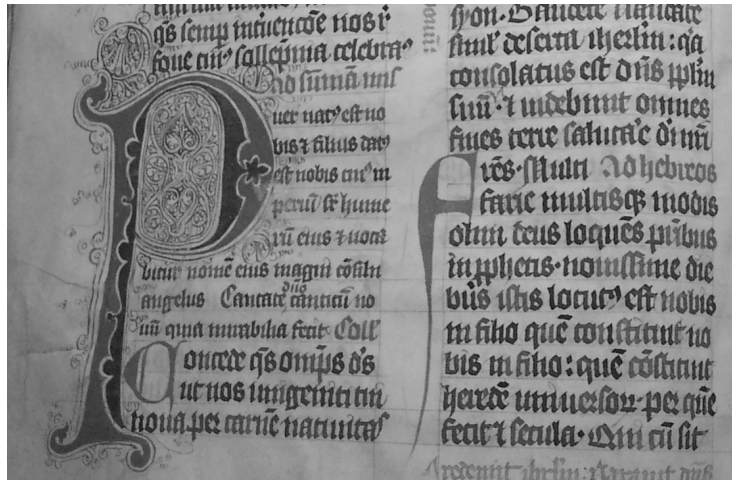 qs semp intuencōe nosr
foue cui9 sollēpnia celebra9
Ad sūmā mis
Puer nat9 est no
bis ⁊ filius dat9
est nobis cui9 im
periū sr̄ hume
rū eius ⁊ uoca
bitur nomē eius magni cōsilii
angelus Cantate dn̄o canticū no
uū quia mirabilia fecit Coll̄
Concede qs omp̄s ds̄
ut nos unigeniti tui
noua per carnē natiuitas
syon. Gaudete ⁊ laudate
simł deserta ihrlm̄: qa
consolatus est dn̄s pplm̄
suū. ⁊ uidebunt omnes
fines terre salutāe di nr̄i
Frēs. Multi Ad hebreos
farie multisqꝫ modis
olim deus loquēs pr̄ibus
in pphetis. nouissime die
bus istis locut9 est nobis
in filio quē constituit uo
bis in filio: quē cōstituit
heredē uniuersoꝝ. per quē
fecit ⁊ secula. Qui cū sit